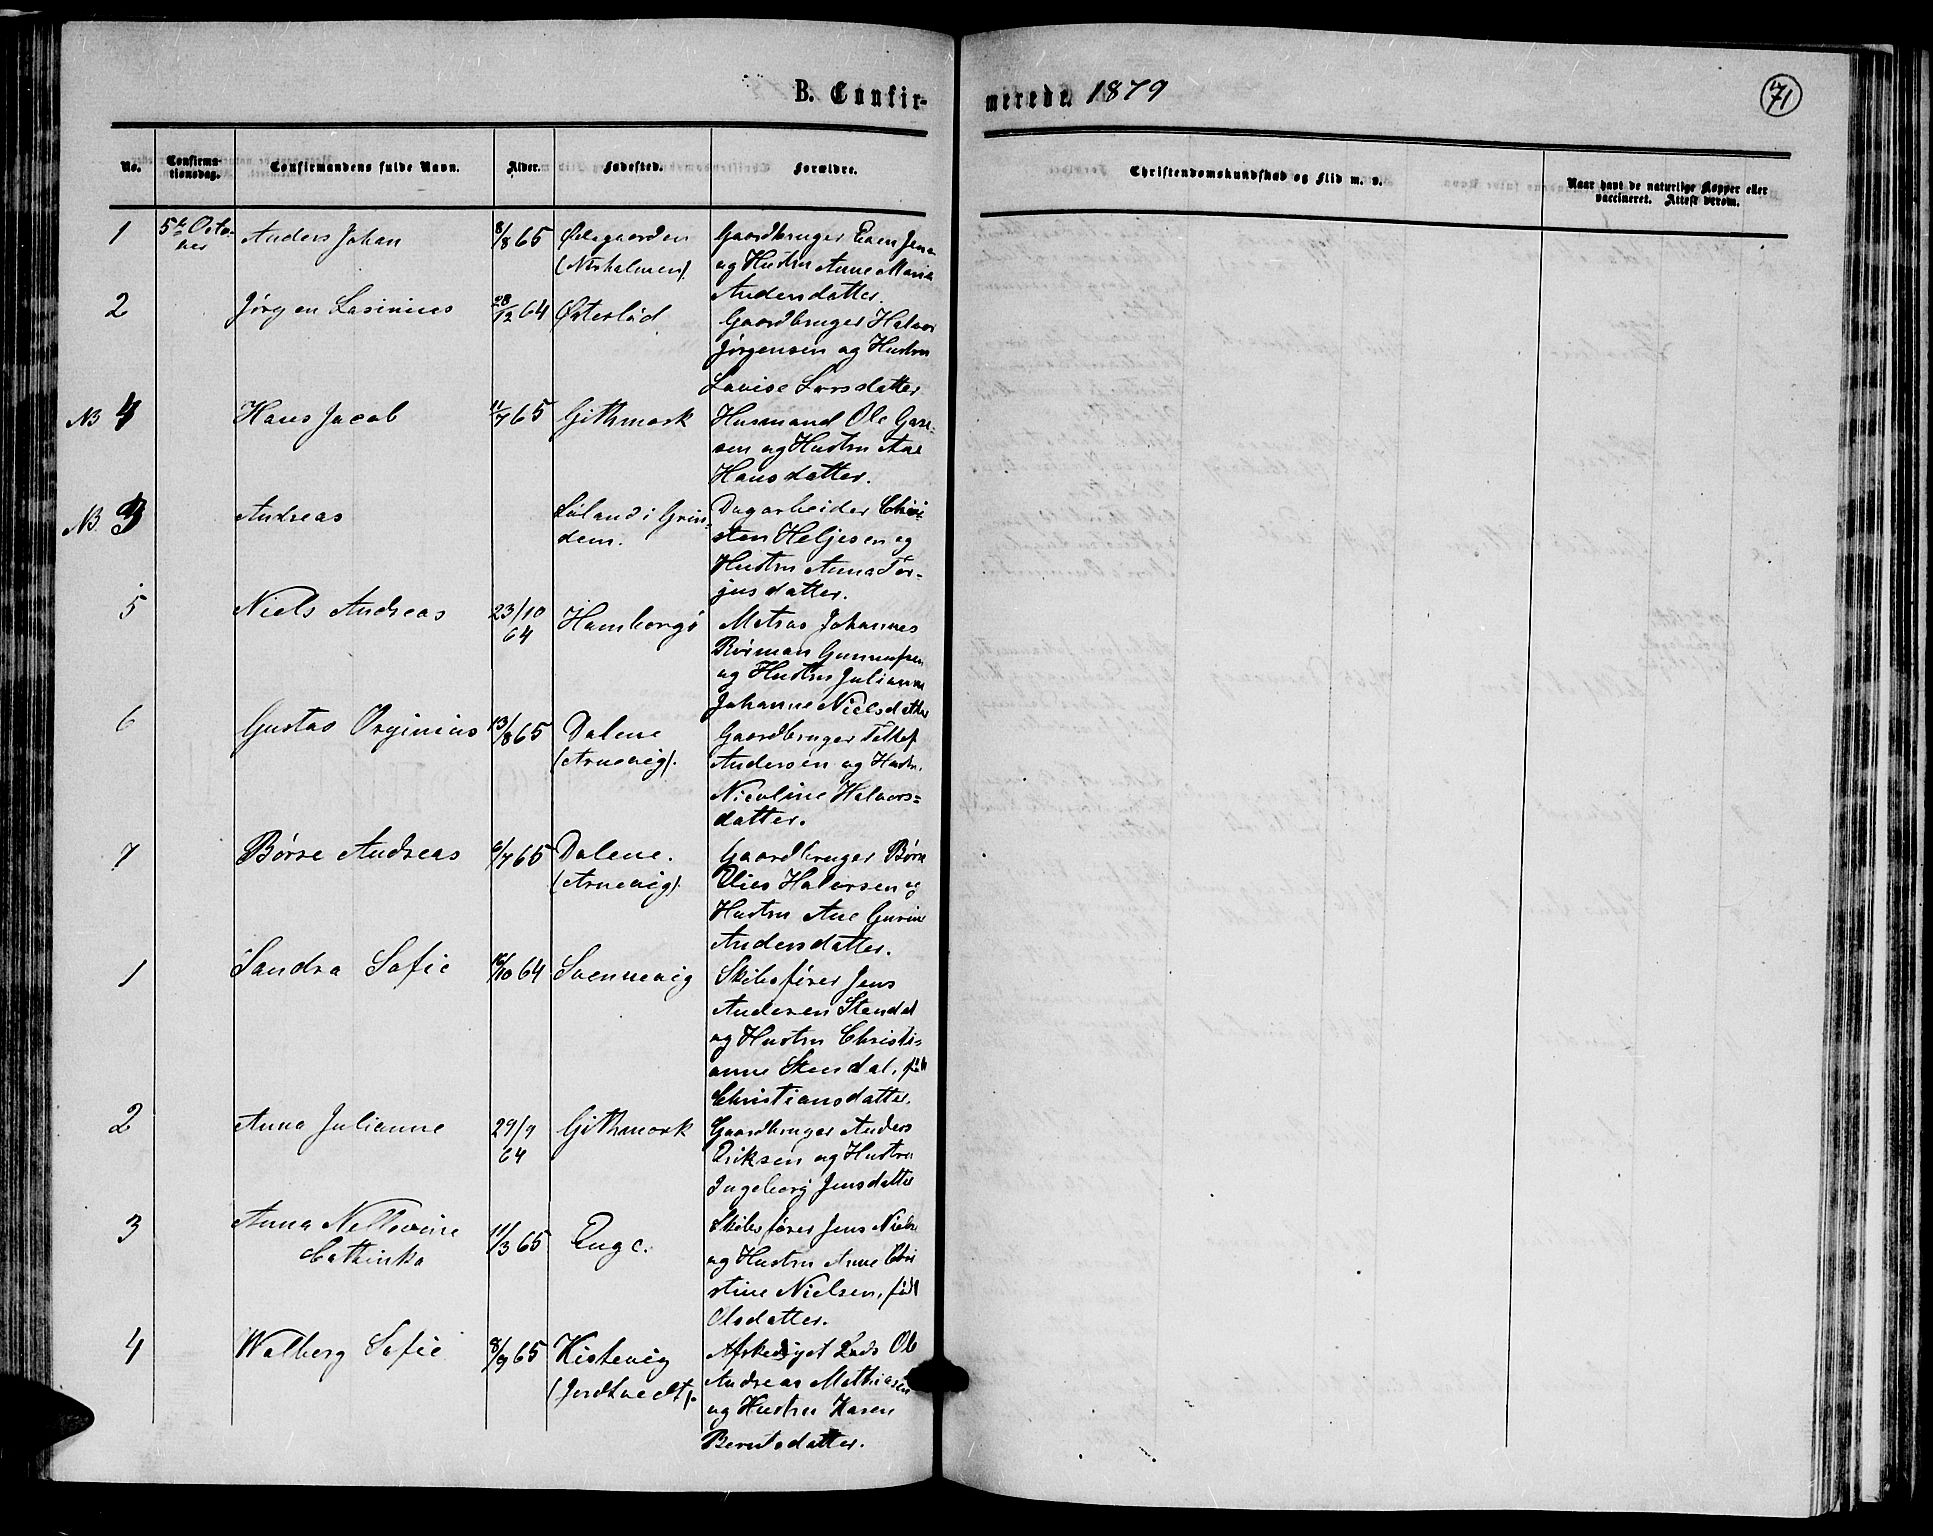 B. Confir-
merede 1879
71
No.
Confirma-
tionsdag.
Confirmandens fulde Navn.
Alder.
Fødested.
Forældre.
Christendomskundskab og Flid m. v.
Naar havt de naturlige Kopper eller
vaccineret. Attest derom.
1 5te Octo- Anders Johan 8/8 65 Ødegaarden Gaardbruger Even Jens
ber (Nesholmen). og Hustru Anne Marie
Andersdatter.
2 Jørgen Lasinius 28/12 64 Østerlød Gaardbruger Halvor
Jørgensen og Hustru
Lovise Larsdatter
NB 4 Hans Jacob 11/7 65 Githmark Husmand Ole
sen og Hustru Ane
Hansdatter.
NB 3 Andreas i Grin- Dagarbeider Chri-
dem. sten Heljesen og
Hustru Anna Tor-
jusdatter.
5 Niels Andreas 23/10 Homborgø Matros Johannes
64 Gunnufsen
og Hustru Julianne
Johanne Nielsdatter
6 Gustav Orginius 13/8 65 Dalene Gaardbruger Tellef
(Arnevig). Andersen og Hustru
Nicoline Halvors-
datter.
7 Børre Andreas 6/7 65 Dalene. Gaardbruger Børre
(Arnevig). Elies Halvorsen og
Hustru Ane Gurine
Andersdatter.
1 Sandra Sofie 16/10 64 Svennevig Skibsfører Jens
Andersen Stendal
og Hustru Christi-
anne Stendal, født
Christiansdatter.
2 Anna Julianne 29/9 Githmark Gaardbruger Anders
64 Eriksen og Hustru
Ingeborg Jensdatter
3 Anna Nellevine 11/3 65 Enge. Skibsfører Jens Nielsen
Cathinka og Hustru Anne Chri
stine Nielsen, født
Olsdatter.
4 Walberg Sofie 8/9 65 Kistevig Afskediget Lods Ole
(Jordtvedt). Andreas Mathiasen
og Hustru Karen
Berntsdatter.